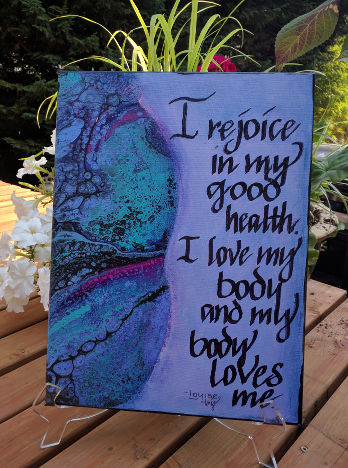 I rejoice
in my
good
health.
I love my
body
and my
body
loves
me.
-Louise
Hay